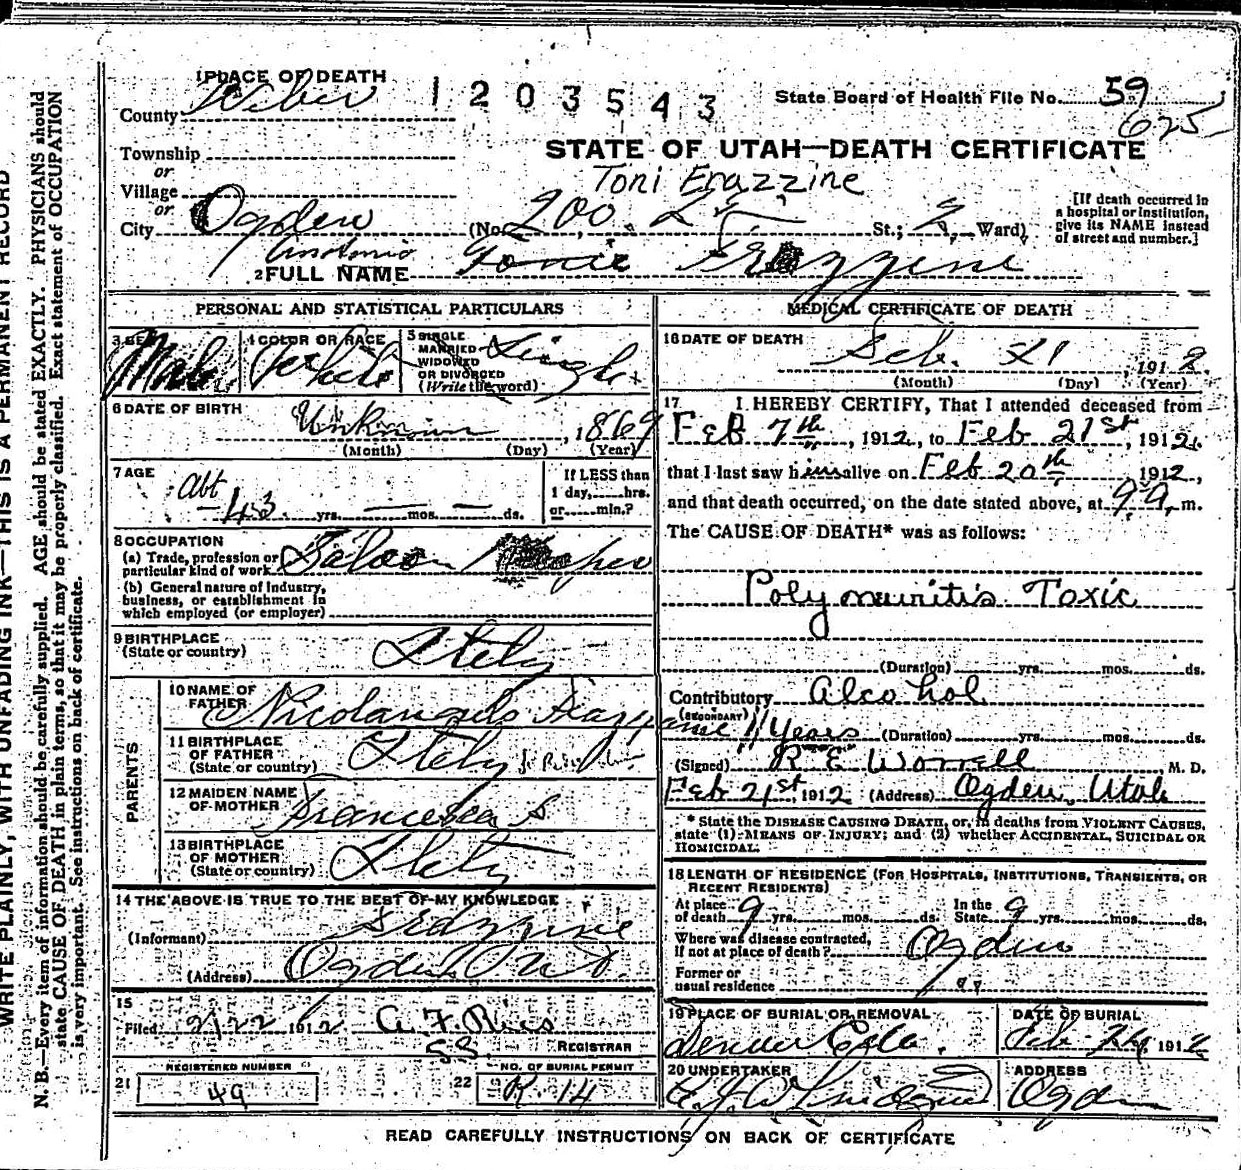 WRITE PLAINLY, WITH UNFADING INK—THIS IS A PERMANENT RECORD
N. B.—Every item of information should be carefully supplied. AGE should be stated EXACTLY. PHYSICIANS should
state CAUSE OF DEATH in plain terms, so that it may be properly classified. Exact statement of OCCUPATION
is very important. See instructions on back of certificate.
1 PLACE OF DEATH
County Weber
1203543
State Board of Health File No. 59
625
Township
or
Village
or
City Ogden
STATE OF UTAH—DEATH CERTIFICATE
Toni Frazzine
(No. 200. 25 St.; 2, Ward)
[If death occurred in
a hospital or institution,
give its NAME instead
of street and number.]
Antonio
2 FULL NAME Tonie Frazzine
PERSONAL AND STATISTICAL PARTICULARS
3 SEX Male
4 COLOR OR RACE White
5 SINGLE
MARRIED
WIDOWED
OR DIVORCED
(Write the word) Single
6 DATE OF BIRTH
Unknown, 1869
(Month) (Day) (Year)
7 AGE
abt
43 yrs. — mos. — ds.
If LESS than
1 day, hrs.
or min.?
8 OCCUPATION
(a) Trade, profession or
particular kind of work Saloon
(b) General nature of Industry,
business, or establishment in
which employed (or employer)
9 BIRTHPLACE
(State or country) Itely
PARENTS
10 NAME OF
FATHER Nicolangelo
11 BIRTHPLACE
OF FATHER
(State or country) Itely
12 MAIDEN NAME
OF MOTHER Francesca S.
13 BIRTHPLACE
OF MOTHER
(State or country) Itely
14 THE ABOVE IS TRUE TO THE BEST OF MY KNOWLEDGE
(Informant) Frazzine
(Address) Ogden
15
Filed 2/22 1912
REGISTRAR
REGISTERED NUMBER
21 49
NO. OF BURIAL PERMIT
22 R. 14
MEDICAL CERTIFICATE OF DEATH
16 DATE OF DEATH
Feb. 21, 1912.
(Month) (Day) (Year)
17 I HEREBY CERTIFY, That I attended deceased from
Feb 7th, 1912, to Feb 21st, 1912.
that I last saw him alive on Feb 20th 1912,
and that death occurred, on the date stated above, at 9 a. m.
The CAUSE OF DEATH* was as follows:
Poly neuritis Toxic
(Duration) yrs. mos. ds.
Contributory Alcohol
(SECONDARY)
years (Duration) yrs. mos. ds.
(Signed) R E Worrell M. D.
Feb 21st, 1912 (Address) Ogden, Utah
* State the DISEASE CAUSING DEATH, or, in deaths from VIOLENT CAUSES,
state (1) MEANS OF INJURY; and (2) whether ACCIDENTAL, SUICIDAL OR
HOMICIDAL.
18 LENGTH OF RESIDENCE (FOR HOSPITALS, INSTITUTIONS, TRANSIENTS, OR
RECENT RESIDENTS)
At place
of death 9 yrs. mos. ds.
In the
State 9 yrs. mos. ds.
Where was disease contracted,
if not at place of death? Ogden
Former or
usual residence
19 PLACE OF BURIAL OR REMOVAL
Denver Colo.
DATE OF BURIAL
Feb 24, 1912
20 UNDERTAKER
ADDRESS
Ogden
READ CAREFULLY INSTRUCTIONS ON BACK OF CERTIFICATE